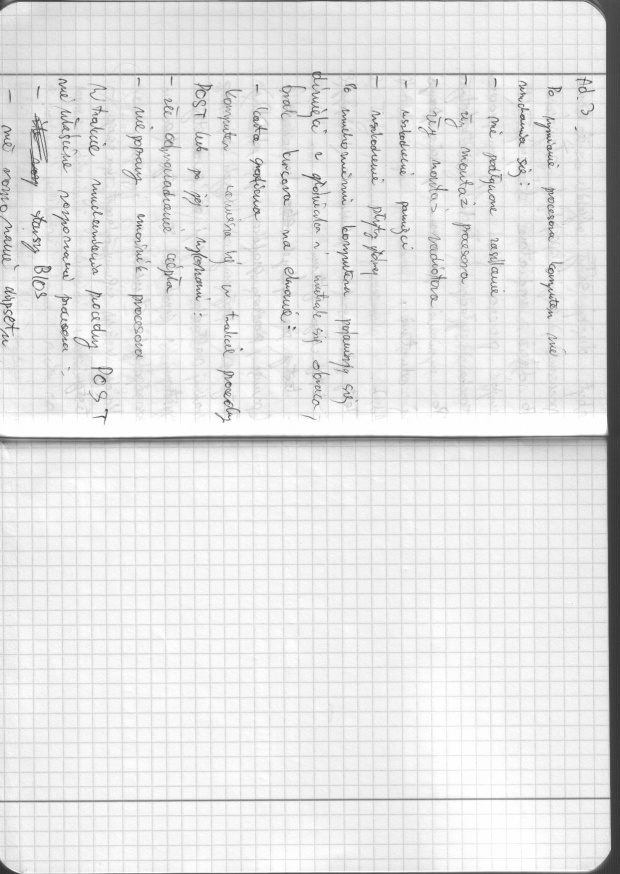 Ad. 3
Po wymianie procesora komputer nie
uruchamia się:
- nie podłączone zasilanie
- zły montaż procesora
- zły montaż radiatora
- uszkodzenie pamięci
- uszkodzenie płyty głównej
Po uruchomieniu komputera pojawiają się
dźwięki z głośniczka i wiatrak się obraca,
brak kursora na ekranie:
- karta graficzna
Komputer zawiesza się w trakcie procedury
POST lub po jej wykonaniu:
- złe odprowadzenie ciepła
- niepoprawny mnożnik procesora
W trakcie uruchamiania procedury POST
niewłaściwe rozpoznanie procesora:
- stary BIOS
- nie rozpoznanie chipsetu